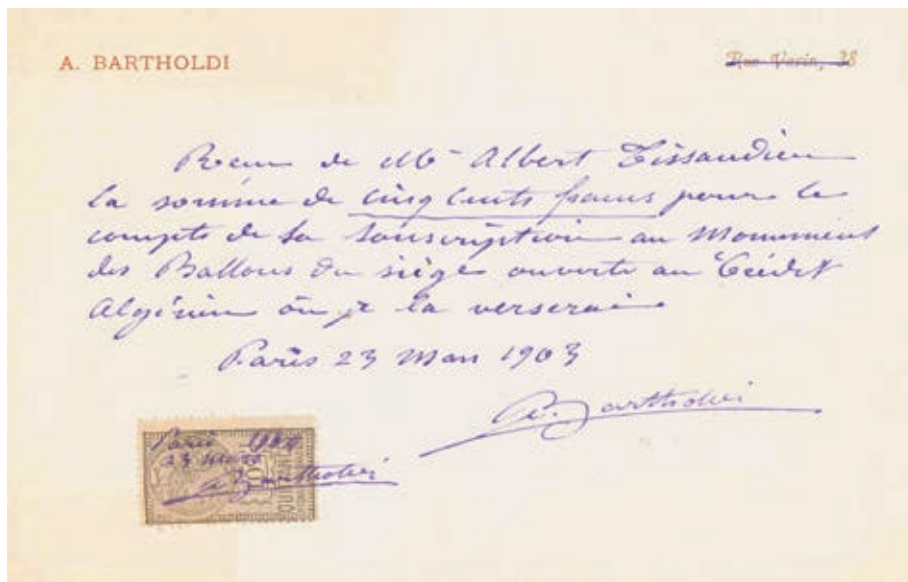 A. BARTHOLDI
Rue Vavin, 38
Reçu de Mr Albert Tissandier
la somme de cinq cents francs pour le
compte de la souscription au Monument
des Ballons du siège ouverte au Crédit
Algérien où je la verserai
Paris 23 Mars 1903
A. Bartholdi
Paris
23 Mars
A Bartholdi